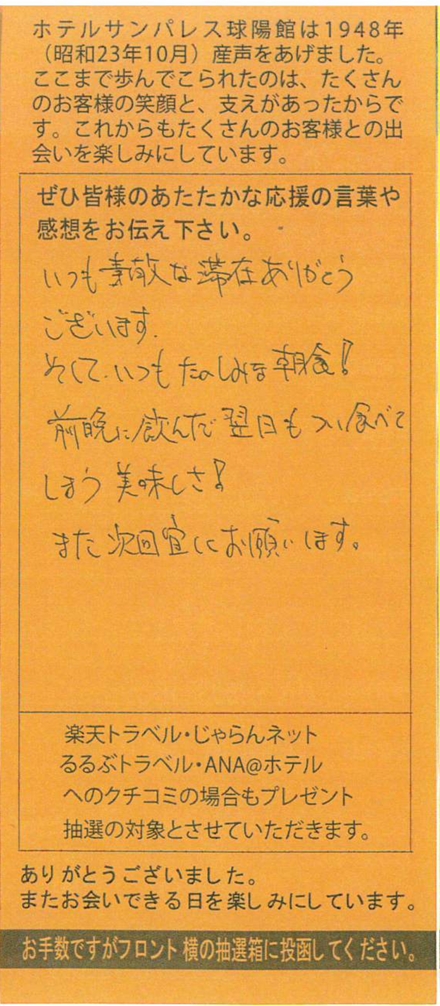 ホテルサンパレス球陽館は1948年
(昭和23年10月)産声をあげました。
ここまで歩んでこられたのは、たくさん
のお客様の笑顔と、支えがあったからで
す。これからもたくさんのお客様との出
会いを楽しみにしています。
ぜひ皆様のあたたかな応援の言葉や
感想をお伝え下さい。
いつも素敵な滞在ありがとう
ございます.
そして、いつもたのしみな朝食!
前晩に飲んだ翌日もつい食べて
しまう美味しさ!
また次回宜しくお願いします。
楽天トラベル・じゃらんネット
るるぶトラベル・ANA@ホテル
へのクチコミの場合もプレゼント
抽選の対象とさせていただきます。
ありがとうございました。
またお会いできる日を楽しみにしています。
お手数ですがフロント横の抽選箱に投函してください。